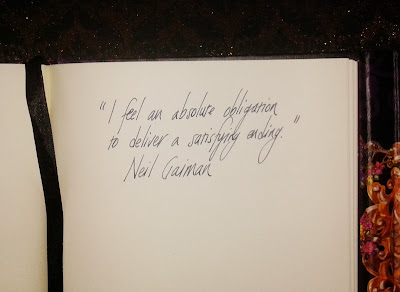 "I feel an absolute obligation
to deliver a satisfying ending."
Neil Gaiman